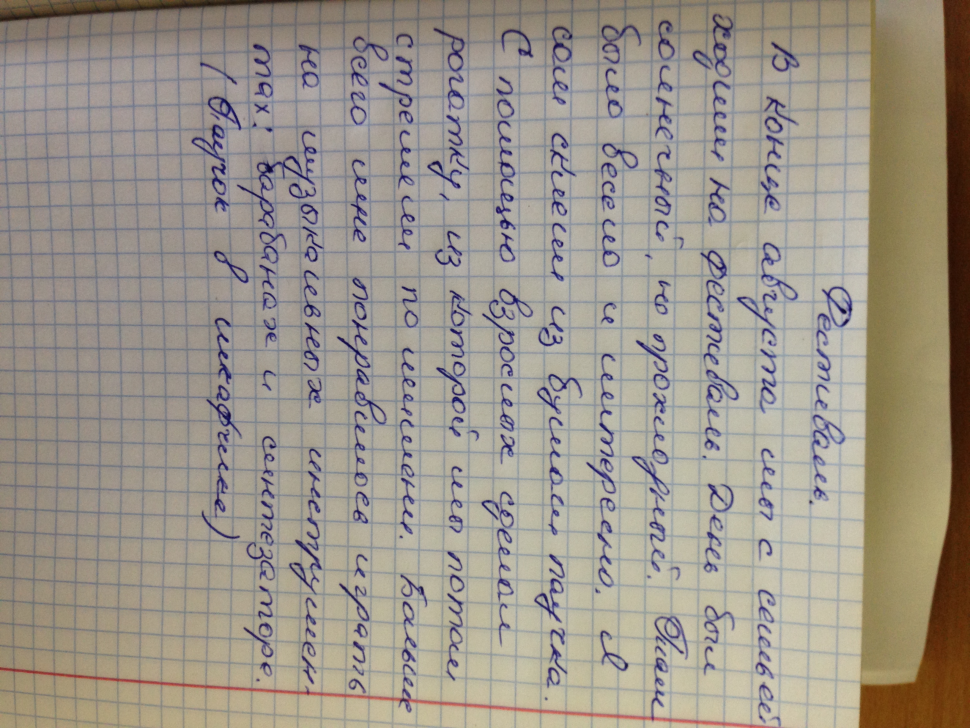 Фестиваль.
В конце августа мы с семьёй
ходили на фестиваль. День был
солнечный, но прохладный. Там
было весело и интересно. Я
сам склеил из бумаги паучка.
С помощью взрослых сделал
рогатку, из которой мы потом
стреляли по мишени. Больше
всего мне понравилось играть
на музыкальных инструмен-
тах: барабанах и синтезаторе.
(Паучок в шкафчике)